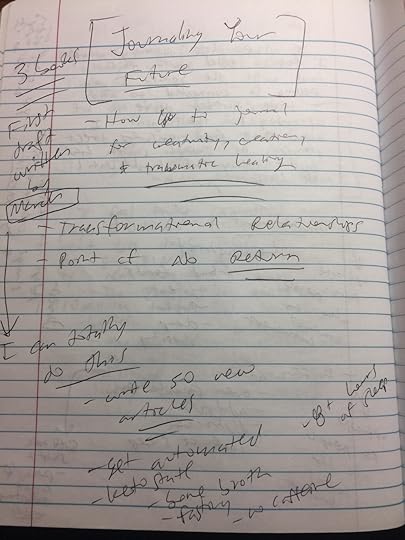 3 books
Journaling Your
Future
First
draft
written
by
March
- How to journal
for creativity, creation,
& traumatic healing
- Transformational Relationships
- Point of No Return
I can totally
do this
- write 50 new
articles
- 8+ hours
of sleep
- get automated
- keto state
- bone broth
- fasting
- no caffeine